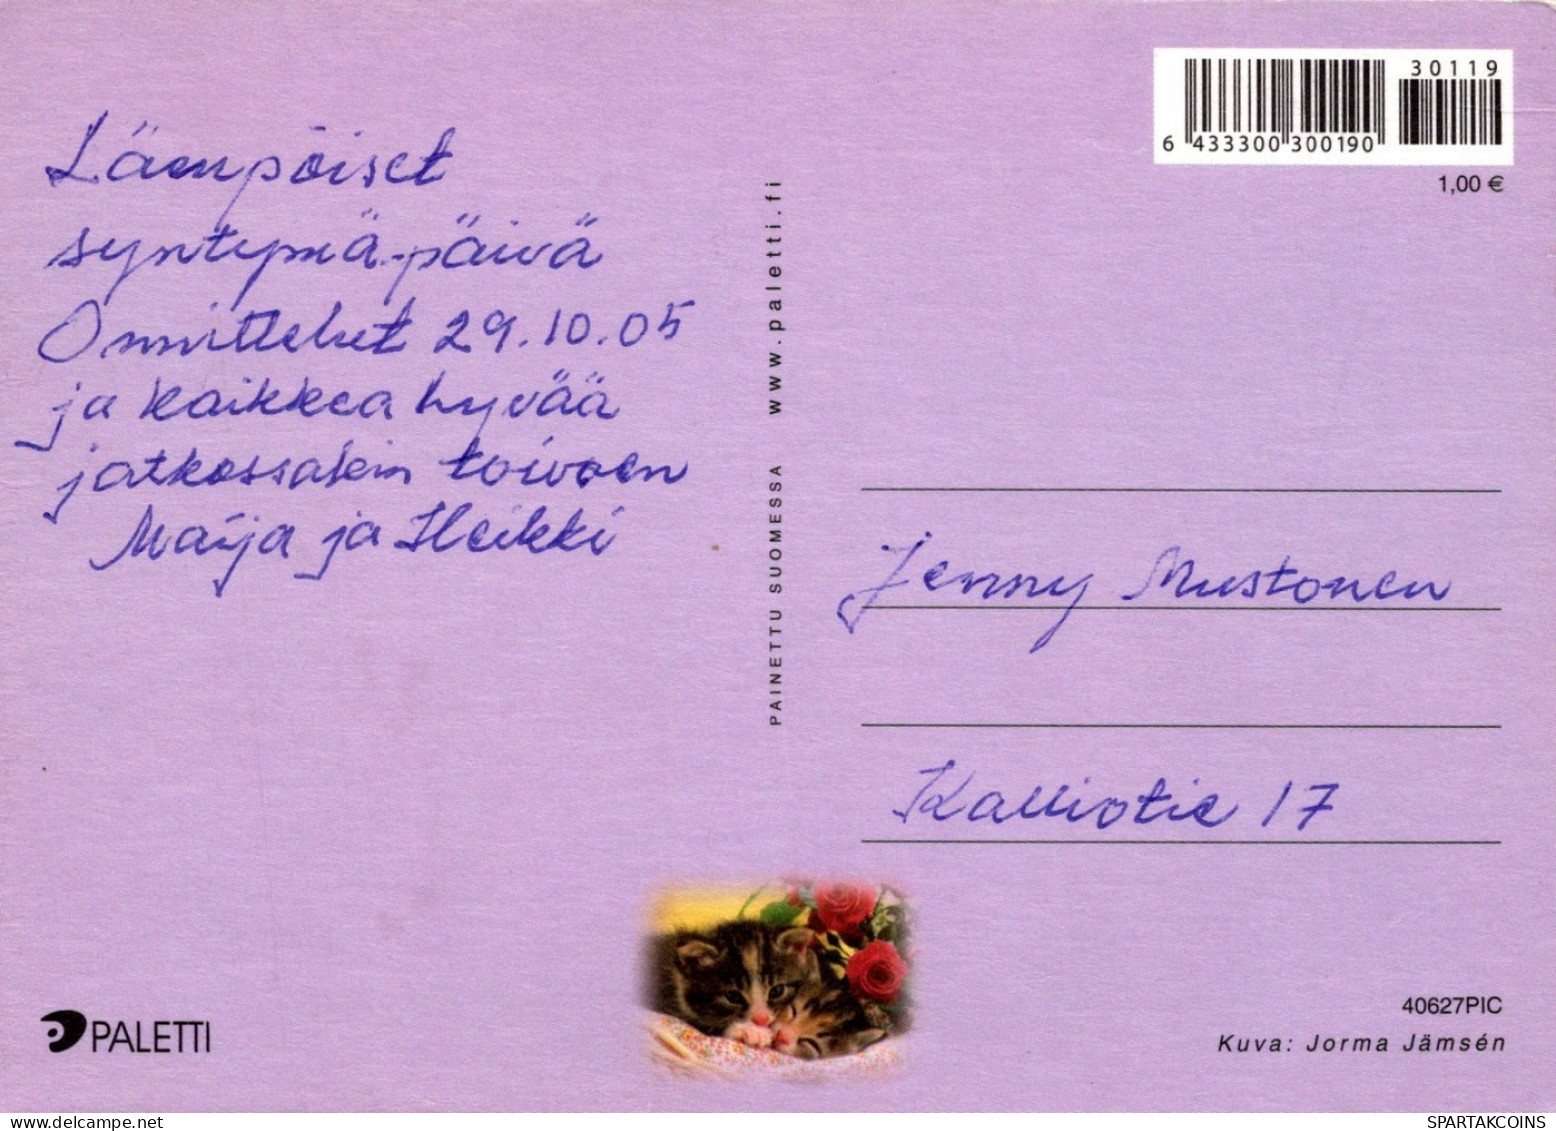 Lämpöiset
syntymä-päivä
Onnittelut 29.10.05
ja kaikkea hyvää
jatkossakin toivoen
Maija ja Heikki
PALETTI
PAINETTU SUOMESSA www.paletti.fi
30119
6 433300 300190
1,00 €
Jenny Mustonen
Kalliotie 17
40627PIC
Kuva: Jorma Jämsén
SPARTAKCOINS